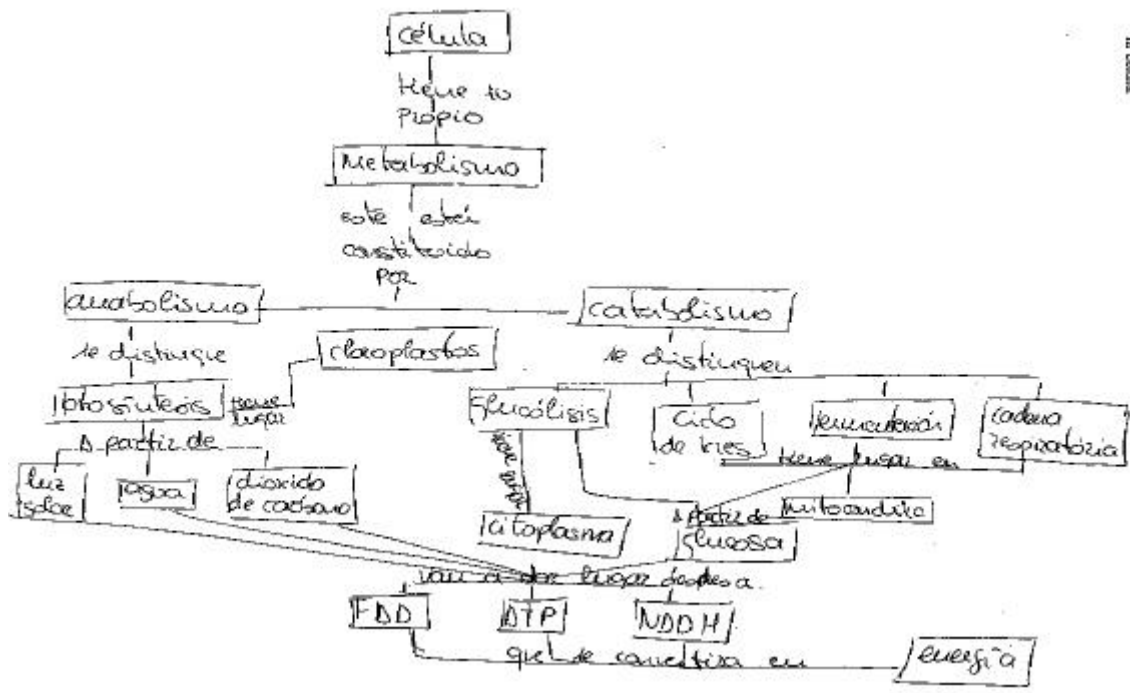 célula
tiene su
propio
Metabolismo
este está
constituido
por
anabolismo
catabolismo
se distingue
cloroplastos
se distinguen
fotosíntesis
tiene
lugar
Glucólisis
Ciclo
de Kres
fermentación
cadena
respiratoria
A partir de
tiene lugar en
luz
solar
agua
dióxido
de carbono
tiene lugar
citoplasma
A partir de
mitocondria
Glucosa
van a dar lugar despues a
FAD
ATP
NADH
que se convertirá en
energía